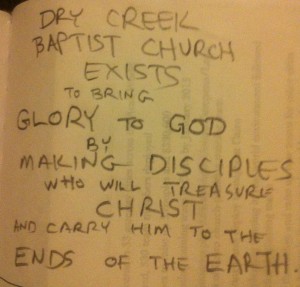 DRY CREEK
BAPTIST CHURCH
EXISTS
TO BRING
GLORY TO GOD
BY
MAKING DISCIPLES
WHO WILL TREASURE
CHRIST
AND CARRY HIM TO THE
ENDS OF THE EARTH.